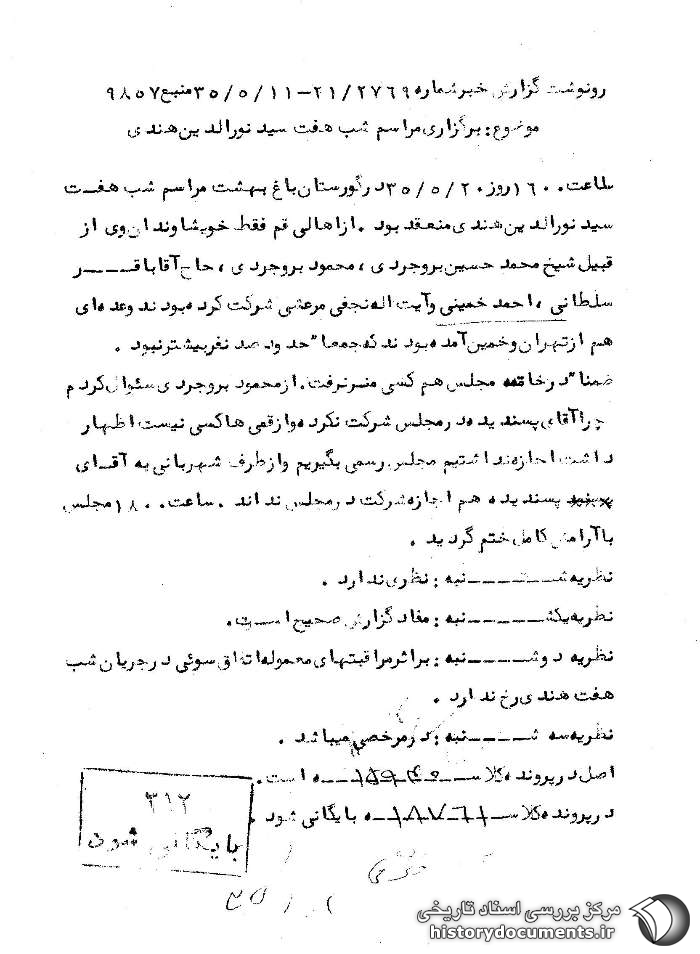 رونوشت گزارش خبر شماره ۲۱/۲۷۶۹-۳۵/۵/۱۱ منبع ۹۸۵۷
موضوع : برگزاری مراسم شب هفت سید نورالدین هندی
ساعت ۱۶۰۰ روز ۳۵/۵/۲۰ در گورستان باغ بهشت مراسم شب هفت
سید نورالدین هندی منعقد بود . از اهالی قم فقط خویشاوندان وی از
قبیل شیخ محمد حسین بروجردی ، محمود بروجردی ، حاج آقا باقــــر
سلطانی ، احمد خمینی و آیت اله نجفی مرعشی شرکت کرده بودند و عده ای
هم از تهران و خمین آمده بودند که جمعا" حدود صد نفر بیشتر نبود .
ضمنا" در خاتمه مجلس هم کسی منبر نرفت . از محمود بروجردی سئوال کردم
چرا آقای پسندیده در مجلس شرکت نکرده و از قمی ها کسی نیست اظهار
داشت اجازه نداشتیم مجلس رسمی بگیریم و از طرف شهربانی به آقــای
پسندیده هم اجازه شرکت در مجلس نداند . ساعت ۱۸۰۰ مجلس
با آرامش کامل ختم گردید .
نظریه شـــــنبه : نظری ندارد .
نظریه یکشـــــنبه : مفاد گزارش صحیح اســت .
نظریه دوشـــــنبه : بر اثر مراقبتهای معموله اتفاق سوئی در جریان شب
هفت هندی رخ نداد .
نظریه سه شـــــنبه : در مرخصی میباشد .
اصل در پرونده کلاســه است .
در پرونده کلاســه بایگانی شود .
۳۱۲
بایگانی شود
مرکز بررسی اسناد تاریخی
historydocuments.ir